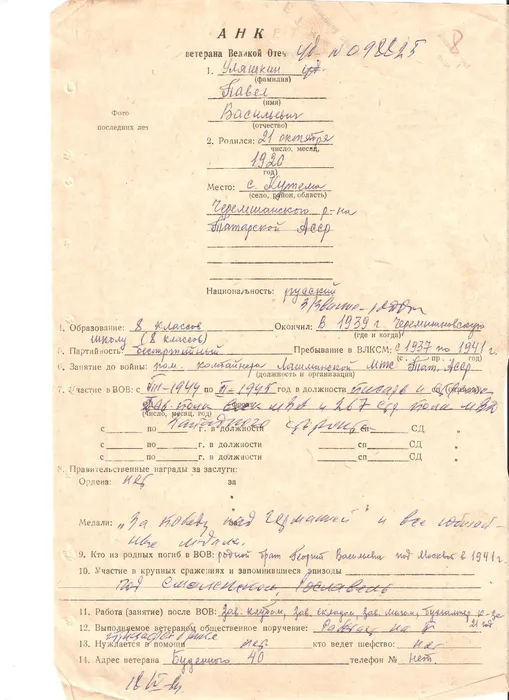 АНК
ветерана Великой Отеч
уд. N 098825
8
1. Уляшкин
(фамилия)
Павел
(имя)
Васильевич
(отчество)
Фото
последних лет
2. Родился: 21 октября
число, месяц,
1920
год)
Место: с. Кутема
(село, район, область)
Черемшанского р-на
Татарской Асср
Национальность: русский
4. Образование: 8 классов Окончил: В 1939 г Черемшановскую
(где и когда)
школу (8 классов)
5. Партийность: беспартийный Пребывание в ВЛКСМ: с 1937 по 1941 г.
6. Занятие до войны: пом. комбайнера Лашманской мтс Тат. Асср
(должность и организация)
7. Участие в ВОВ: с VIII-1944 по II-1945 год в должности писарь и
267 стр полка
(число, месяц, год)
с по г. в должности сп СД
с по г. в должности сп СД
8. Правительственные награды за заслуги:
Ордена: нет за
Медали: „За победу над Германией" и все юбилей-
ные медали.
9. Кто из родных погиб в ВОВ: родной брат Георгий Васильевич под Москвой в 1941 г
10. Участие в крупных сражениях и запомнившиеся эпизоды
под Смоленском, Рославль
11. Работа (занятие) после ВОВ: зав. клубом, зав. складом, зав. магом, бухгалтер к-за
21 год
12. Выполняемое ветераном общественное поручение:
13. Нуждается в помощи нет кто ведет шефство: нет
14. Адрес ветерана Буденного 40 телефон № нет.